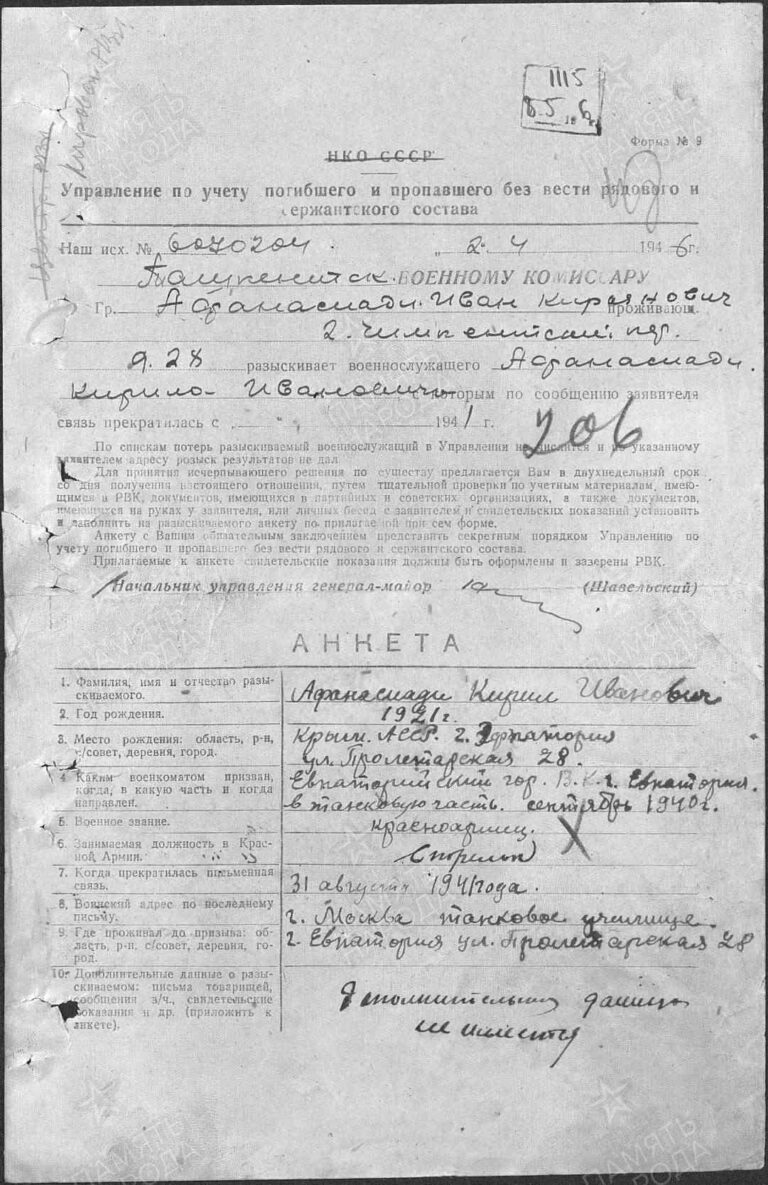 Кировск. РВК
1115
8.5 1946
Форма № 9
НКО СССР
Управление по учету погибшего и пропавшего без вести рядового и
сержантского состава
Наш исх. № 6070204 . „ 2. 4 1946 г.
Ташкентск. ВОЕННОМУ КОМИССАРУ
Гр. Афанасиади Иван Кирьянович проживающ.
2. Чимкентский пер.
д. 28 разыскивает военнослужащего Афанасиади
Кирило Ивановича с которым по сообщению заявителя
связь прекратилась с 1941 г.
206
По спискам потерь разыскиваемый военнослужащий в Управлении не числится и по указанному
заявителем адресу розыск результатов не дал.
Для принятия исчерпывающего решения по существу предлагается Вам в двухнедельный срок
со дня получения настоящего отношения, путем тщательной проверки по учетным материалам, имею-
щимся в РВК, документов, имеющихся в партийных и советских организациях, а также документов,
имеющихся на руках у заявителя, или личных бесед с заявителем и свидетельских показаний установить
и заполнить на разыскиваемого анкету по прилагаемой при сем форме.
Анкету с Вашим обязательным заключением представить секретным порядком Управлению по
учету погибшего и пропавшего без вести рядового и сержантского состава.
Прилагаемые к анкете свидетельские показания должны быть оформлены и заверены РВК.
Начальник управления генерал-майор (Шавельский)
АНКЕТА
1. Фамилия, имя и отчество разы-
скиваемого.
Афанасиади Кирил Иванович
2. Год рождения.
1921 г.
3. Место рождения: область, р-н,
с/совет, деревня, город.
Крым. АССР. г. Эвпатория
ул. Пролетарская 28.
4. Каким военкоматом призван,
когда, в какую часть и когда
направлен.
Евпаторийский гор. В.К. г. Евпатория.
в танковую часть. сентябрь 1940 г.
5. Военное звание.
красноармиец.
6. Занимаемая должность в Крас-
ной Армии.
Стрелок
7. Когда прекратилась письменная
связь.
31 августа 1941 года.
8. Воинский адрес по последнему
письму.
г. Москва танковое училище.
9. Где проживал до призыва: об-
ласть, р-н, с/совет, деревня, го-
род.
г. Евпатория ул. Пролетарская 28
10. Дополнительные данные о разы-
скиваемом: письма товарищей,
сообщения з/ч., свидетельские
показания и др. (приложить к
анкете).
Дополнительных данных
не имеется
ПАМЯТЬ
НАРОДА